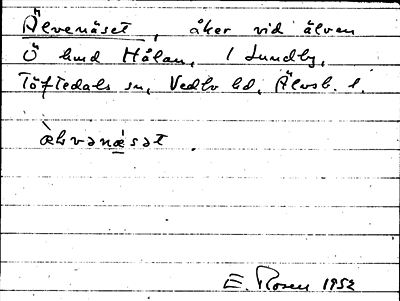 Älvenäset, åker vid älven
Ö hmd Hålan, 1 Lundby,
Töftedals sn, Vedbo hd, Älvsb. l.
E. Rosen 1952